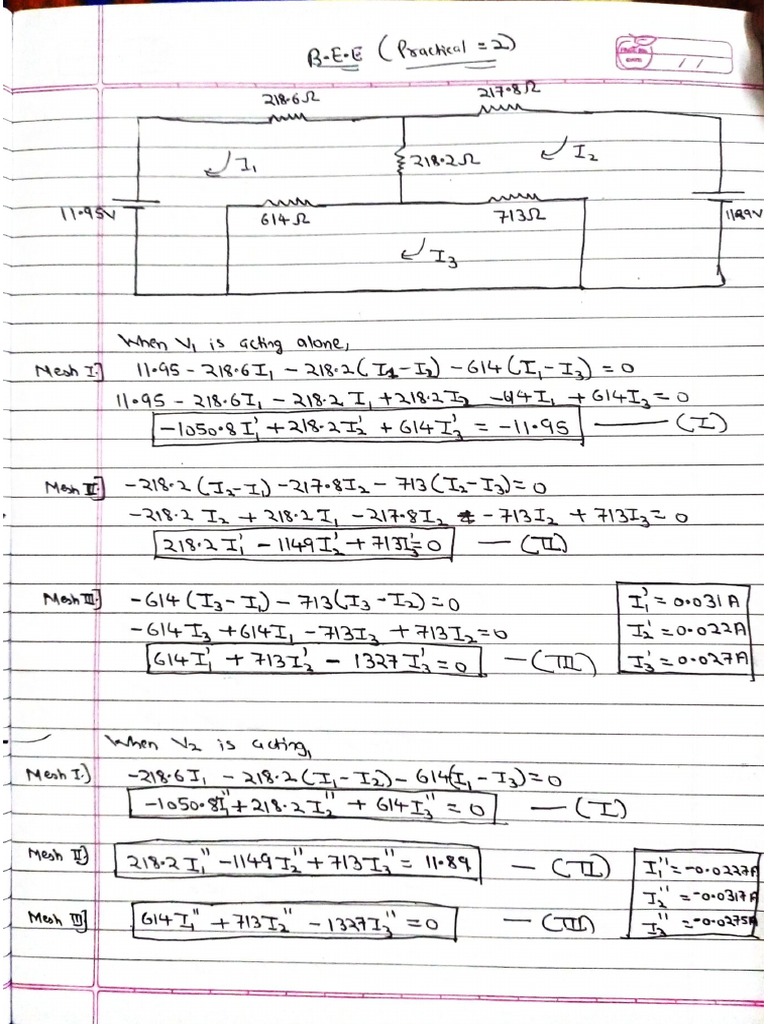 B.E.E (Practical = 2)
DATE / /
218.6Ω
217.8Ω
I₁
218.2Ω
I₂
11.95V
614Ω
713Ω
I₃
When V₁ is acting alone,
Mesh I.] 11.95 - 218.6I₁ - 218.2(I₁-I₂) - 614(I₁-I₃) = 0
11.95 - 218.6I₁ - 218.2I₁ + 218.2I₂ - 614I₁ + 614I₃ = 0
-1050.8I₁' + 218.2I₂' + 614I₃' = -11.95 — (I)
Mesh II] -218.2(I₂-I₁) - 217.8I₂ - 713(I₂-I₃) = 0
-218.2I₂ + 218.2I₁ - 217.8I₂ - 713I₂ + 713I₃ = 0
218.2I₁' - 1149I₂' + 713I₃' = 0 — (II)
Mesh III.] -614(I₃-I₁) - 713(I₃-I₂) = 0
-614I₃ + 614I₁ - 713I₃ + 713I₂ = 0
614I₁' + 713I₂' - 1327I₃' = 0 — (III)
I₁' = 0.031A
I₂' = 0.022A
I₃' = 0.027A
When V₂ is acting,
Mesh I.) -218.6I₁ - 218.2(I₁-I₂) - 614(I₁-I₃) = 0
-1050.8I₁'' + 218.2I₂'' + 614I₃'' = 0 — (I)
Mesh II) 218.2I₁'' - 1149I₂'' + 713I₃'' = 11.89 — (II)
Mesh III] 614I₁'' + 713I₂'' - 1327I₃'' = 0 — (III)
I₁'' = -0.0227A
I₂'' = -0.0317A
I₃'' = -0.0275A